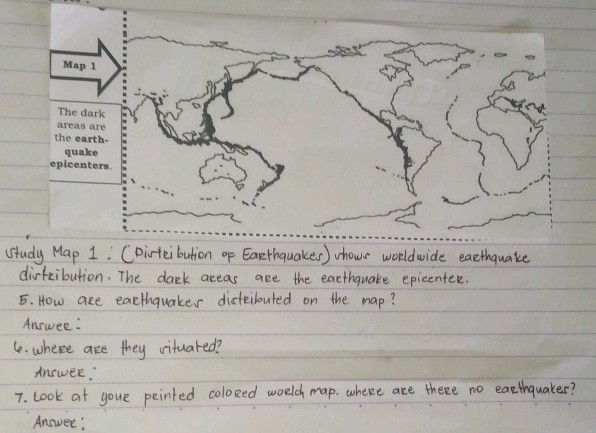 Map 1
The dark
areas are
the earth-
quake
epicenters.
Study Map 1 : (Distribution of Earthquakes) shows worldwide earthquake
distribution. The dark areas are the earthquake epicenter.
5. How are earthquakes distributed on the map?
Answer:
6. where are they situated?
Answer:
7. Look at your printed colored world map. where are there no earthquakes?
Answer: